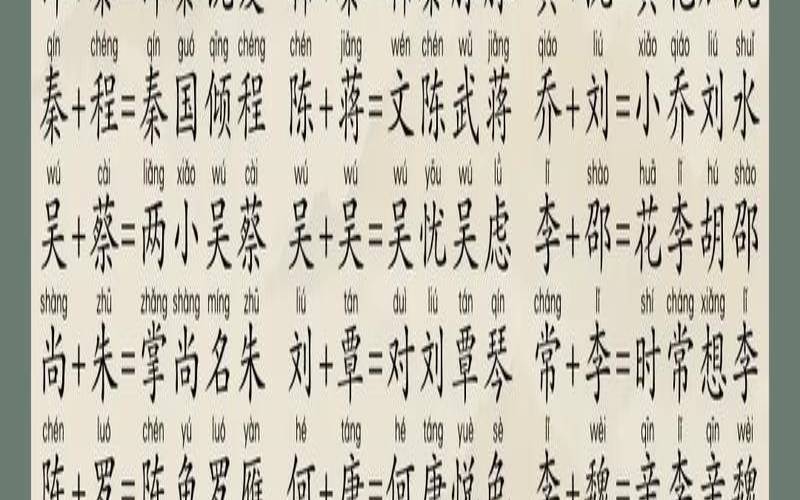 qín chéng qín guó qīng chéng chén jiǎng wén chén wǔ jiǎng qiáo liú xiǎo qiáo liú shuǐ
秦+程=秦国倾程 陈+蒋=文陈武蒋 乔+刘=小乔刘水
wú cài liǎng xiǎo wú cài wú wú wú yōu wú lǜ lǐ shào huā lǐ hú shào
吴+蔡=两小吴蔡 吴+吴=吴忧吴虑 李+邵=花李胡邵
shàng zhū zhǎng shàng míng zhū liú tán duì liú tán qín cháng lǐ shí cháng xiǎng lǐ
尚+朱=掌尚名朱 刘+覃=对刘覃琴 常+李=时常想李
chén luó chén yú luó yàn hé táng hé táng yuè sè lǐ wèi qīn lǐ qīn wèi
陈+罗=陈鱼罗雁 何+唐=何唐悦色 李+魏=亲李亲魏